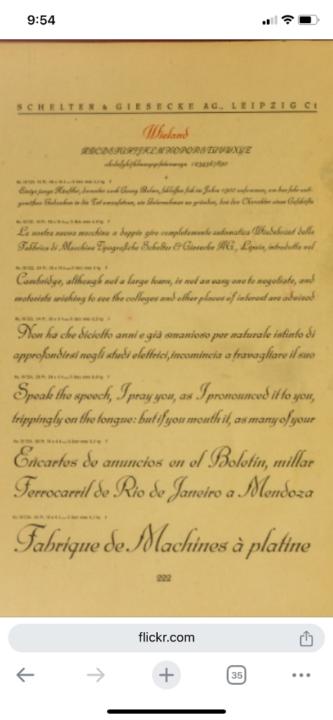 9:54
SCHELTER & GIESECKE AG., LEIPZIG C1
Wieland
ABCDEFGHIJKLMNOPQRSTUVWXYZ
1234567890
Einige junge Künstler, darunter auch Georg
La nostra nuova macchina a doppio giro completamente automatica Windsbraut della
Fabbrica di Macchine Tipografiche Schelter & Giesecke AG., Lipsia, introdotta nel
Cambridge, although not a large town, is not an easy one to negotiate, and
motorists wishing to see the colleges and other places of interest are advised
Non ha che diciotto anni e già smanioso per naturale istinto di
approfondirsi negli studi elettrici, incomincia a travagliare il suo
Speak the speech, I pray you, as I pronounced it to you,
trippingly on the tongue: but if you mouth it, as many of your
Encartes de anuncios en el Boletín, millar
Ferrocarril de Rio de Janeiro a Mendoza
Fabrique de Machines à platine
222
flickr.com
35